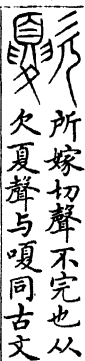 所嫁切聲不完也从
欠夏聲与嗄同古文